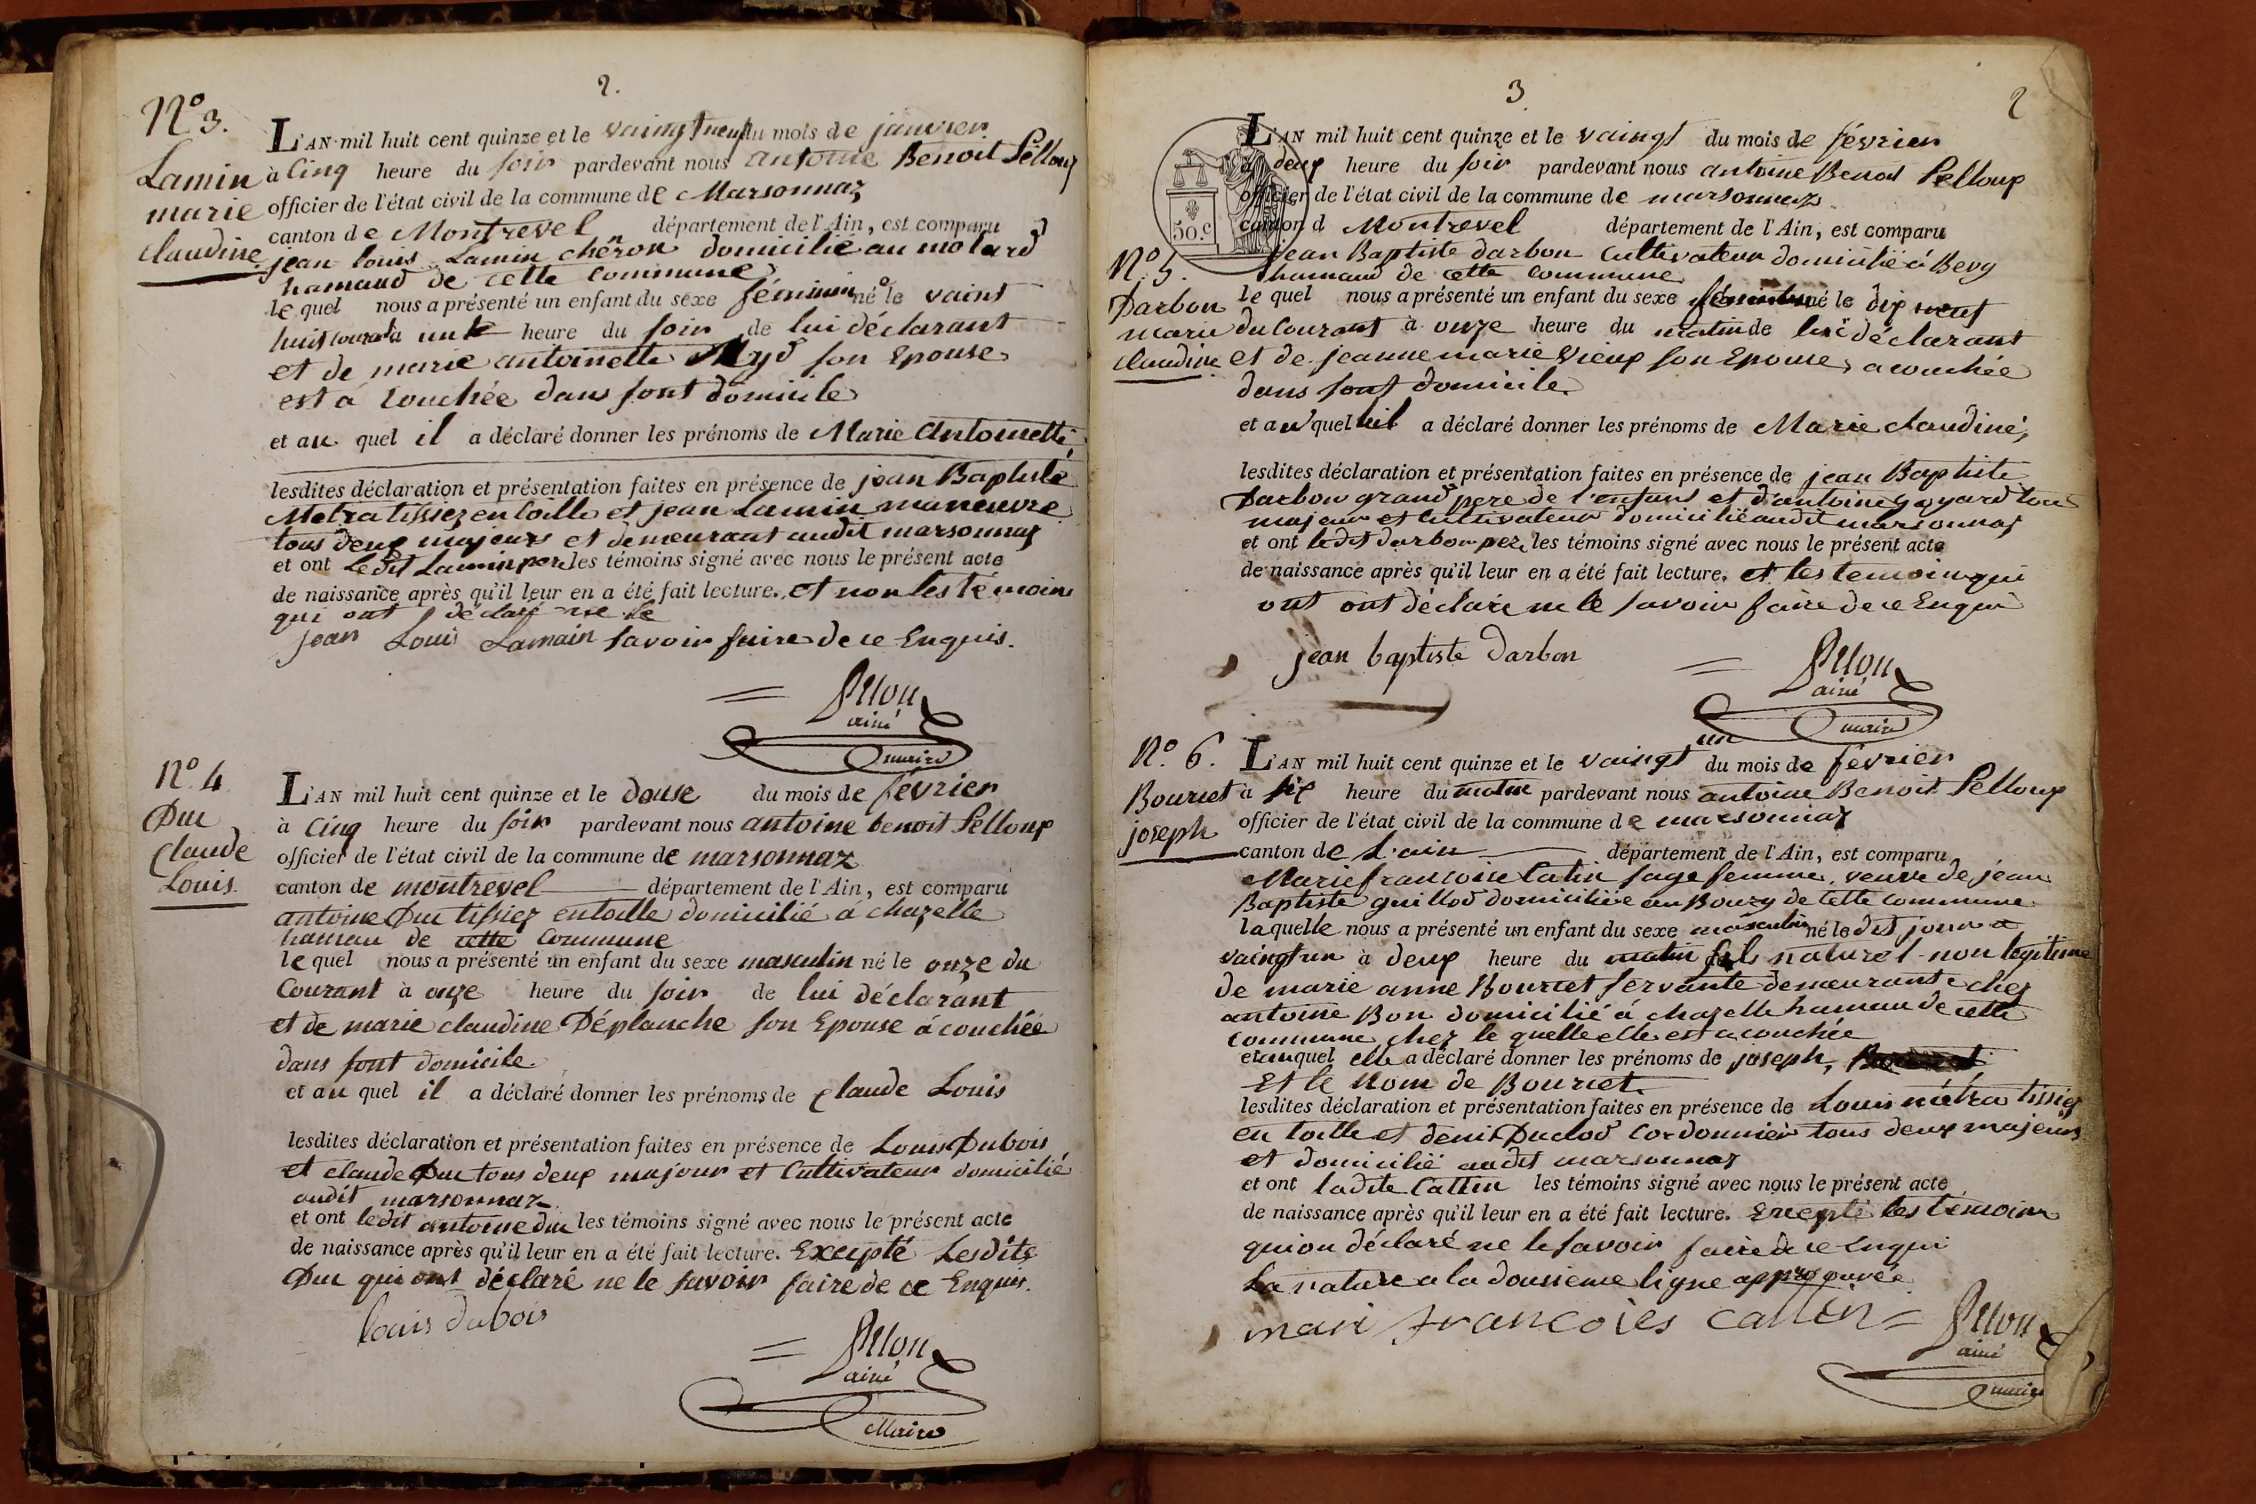 2.
N° 3.
Lamin
marie
claudine
L'AN mil huit cent quinze et le vaingt neuf du mois de janvier
à Cinq heure du soir pardevant nous antoine Benoit Pelloux
officier de l'état civil de la commune de Marsonnaz
canton de Montrevel département de l'Ain, est comparu
jean louis Lamin charon domicilié au molard
hamaud de cette commune
le quel nous a présenté un enfant du sexe féminin né le vaint
huit courant à une heure du soir de lui déclarant
et de marie antoinette son Epouse
est a couchée dans sont domicile
et au quel il a déclaré donner les prénoms de Marie Antoinette,
lesdites déclaration et présentation faites en présence de jean Baptiste
Metra tissiez en toille et jean Lamin maneuvre
tous deux majeurs et demeurant audit marsonnaz
et ont Ledit Lamin pere les témoins signé avec nous le présent acte
de naissance après qu'il leur en a été fait lecture. et non les témoins
qui ont déclaré ne le
jean Louis Lamain savoir faire de ce Enquis.
Pelloux
ainé
maire
N° 4
Duc
Claude
Louis.
L'AN mil huit cent quinze et le douse du mois de février
à Cinq heure du soir pardevant nous antoine benoit Pelloux
officier de l'état civil de la commune de marsonnaz
canton de montrevel département de l'Ain, est comparu
antoine Duc tissiez en toille domicilié á chazelle
hameau de cette Commune
le quel nous a présenté un enfant du sexe masculin né le onze du
Courant à onze heure du soir de lui déclarant
et de marie claudine Déplanche son Epouse á couchée
dans sont domicile
et au quel il a déclaré donner les prénoms de Claude Louis
lesdites déclaration et présentation faites en présence de Louis Dubois
et claude Duc tous deux majour et Cultivateur domicilié
audit marsonnaz
et ont ledit antoine duc les témoins signé avec nous le présent acte
de naissance après qu'il leur en a été fait lecture. Excepté Lesdits
Duc qui ont déclaré ne le savoir faire de ce Enquis.
louis dubois
Pelloux
ainé
Maire
3
2
50.c
N° 5.
Darbon
marie
claudine
L'AN mil huit cent quinze et le vaingt du mois de février
à deux heure du soir pardevant nous antoine Benoit Pelloux
officier de l'état civil de la commune de marsonnaz
canton d Montrevel département de l'Ain, est comparu
jean Baptiste darbon Cultivateur domicilié á Bevy
hamaud de cette commune
le quel nous a présenté un enfant du sexe féminin né le dix neuf
du Courant à onze heure du matin de lui déclarant
et de jeanne marie Vieux son Epouse, a couchée
dans sont domicile.
et au quel il a déclaré donner les prénoms de Marie claudine,
lesdites déclaration et présentation faites en présence de jean Baptiste
Darbon grand pere de l'enfant et d'antoine goyard tous
majeur et Cultivateur domicilié audit marsonnaz
et ont ledit darbon pere les témoins signé avec nous le présent acte
de naissance après qu'il leur en a été fait lecture. et les temoin qui
ont ont déclaré ne le savoir faire de ce Enqui
jean baptiste darbon
Pelloux
ainé
maire
N°. 6.
Bouriet
joseph
un
L'AN mil huit cent quinze et le vaingt du mois de février
à six heure du matin pardevant nous antoine Benoit Pelloux
officier de l'état civil de la commune de marsonnaz
canton de L'ain département de l'Ain, est comparu
Marie francoise Catin sage femme, veuve de jean
Baptiste guillod domiciliée au Bourg de cette commune
laquelle nous a présenté un enfant du sexe masculin né le dit jour
vaingt un à deux heure du matin fils naturel non legitime
de marie anne Bouriet servante demeurante chez
antoine Bon domicilié á chazelle hameau de cette
Commune chez le quelle elle est acouchée
et auquel elle a déclaré donner les prénoms de joseph,
Et le Nom de Bouriet
lesdites déclaration et présentation faites en présence de Louis métra tissiez
en toille et denis Duclod Cordonnier tous deux majeurs
et domicilié audit marsonnaz
et ont ladite Cattin les témoins signé avec nous le présent acte
de naissance après qu'il leur en a été fait lecture. Excepté les témoins
qui on déclaré ne le savoir faire de ce Enqui
La rature a la dousieme ligne approuvée
mari francoies cattin
Pelloux
ainé
maire